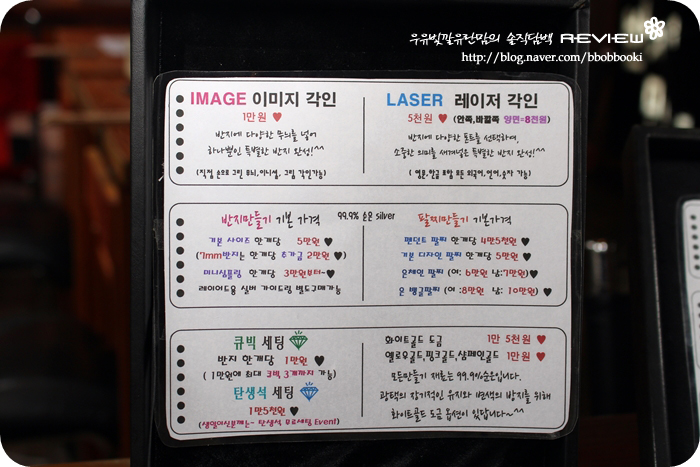 우유빛깔유런맘의 솔직담백 REVIEW
http://blog.naver.com/bbobbooki
IMAGE 이미지 각인
1만원 ♥
반지에 다양한 무늬를 넣어
하나뿐인 특별한 반지 완성!^^
(직접 손으로 그린 무늬, 이니셜, 그림 각인가능)
LASER 레이저 각인
5천원 ♥ (안쪽,바깥쪽 양면=8천원)
반지에 다양한 폰트를 선택하여
소중한 의미를 새겨넣은 특별한 반지 완성!^^
( 영문,한글 포함 모든 외국어,언어,숫자 가능)
반지만들기 기본 가격 99.9% 순은 silver
기본 사이즈 한개당 5만원 ♥
(7mm반지는 한개당 추가금 2만원 ♥)
미니심플링 한개당 3만원부터~♥
레이어드용 실버 가이드링 별도구매가능
팔찌만들기 기본가격
팬던트 팔찌 한개당 4만5천원 ♥
기본 디자인 팔찌 한개당 5만원 ♥
은체인 팔찌 (여: 6만원 남:7만원)♥
은 뱅글팔찌 (여 :8만원 남: 10만원) ♥
큐빅 세팅
반지 한개당 1만원 ♥
( 1만원에 최대 큐빅 3개까지 가능)
탄생석 세팅
1만5천원 ♥
(생일이신분께는~ 탄생석 무료세팅 Event)
화이트골드 도금 1만 5천원 ♥
옐로우골드,핑크골드,샴페인골드 1만원 ♥
모든만들기 재료는 99.9%순은입니다.
광택의 장기적인 유지와 변색의 방지를 위해
화이트골드 도금 옵션이 있답니다~^^